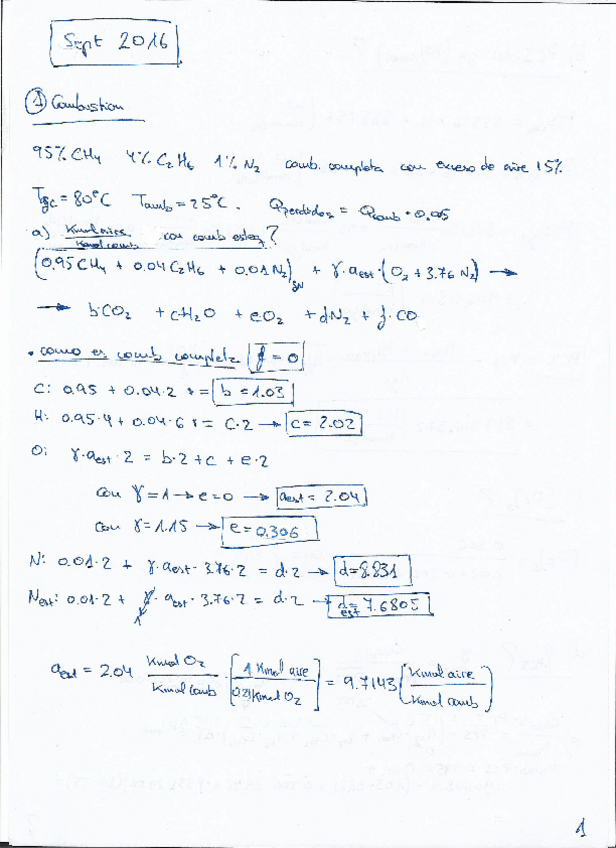 Sept 2016
① Combustion
95% CH4 4% C2H6 1% N2 comb. completa con exceso de aire 15%
Tgc = 80°C Tamb = 25°C. Qperdidas = Qcomb · 0.05
a) Kmol aire / Kmol comb con comb esteq?
(0.95 CH4 + 0.04 C2H6 + 0.01 N2)GN + γ·aest·(O2 + 3.76 N2) →
→ b·CO2 + c·H2O + e·O2 + d·N2 + f·CO
• como es comb completa f = 0
C: 0.95 + 0.04·2 = b = 1.03
H: 0.95·4 + 0.04·6 = c·2 → c = 2.02
O: γ·aest·2 = b·2 + c + e·2
con γ = 1 → e = 0 → aest = 2.04
con γ = 1.15 → e = 0.306
N: 0.01·2 + γ·aest·3.76·2 = d·2 → d = 8.831
Nest: 0.01·2 + γ·aest·3.76·2 = d·2 → dest = 7.6805
1
aest = 2.04 Kmol O2 / Kmol comb · [1 Kmol aire / 0.21 Kmol O2] = 9.7143 (Kmol aire / Kmol comb)
1